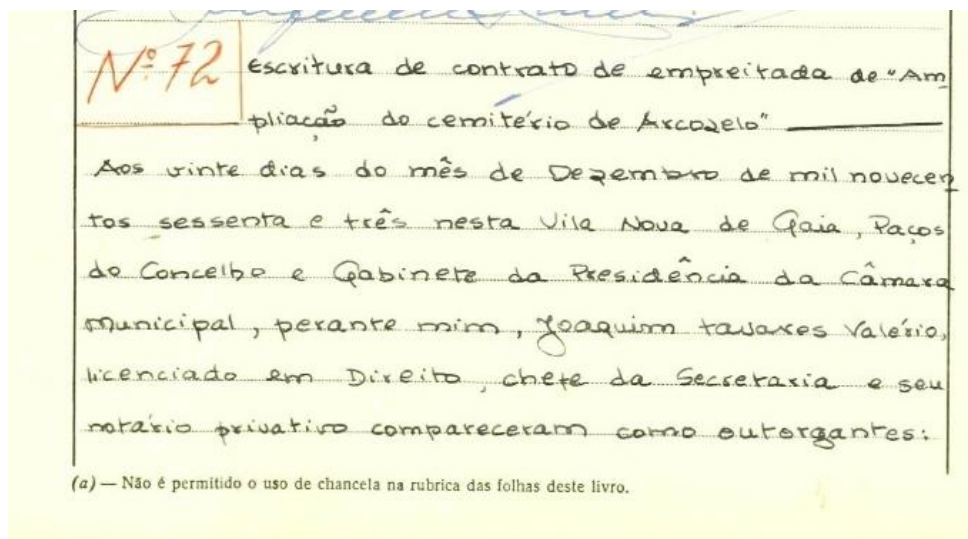 Nº 72
Escritura de contrato de empreitada de "Am
pliação do cemitério de Arcozelo"
Aos vinte dias do mês de Dezembro de mil novecen
tos sessenta e três nesta Vila Nova de Gaia, Paços
do Concelho e Gabinete da Presidência da Câmara
Municipal, perante mim, Joaquim Tavares Valério,
licenciado em Direito, chefe da Secretaria e seu
notário privativo compareceram como outorgantes:
(a) — Não é permitido o uso de chancela na rubrica das folhas deste livro.